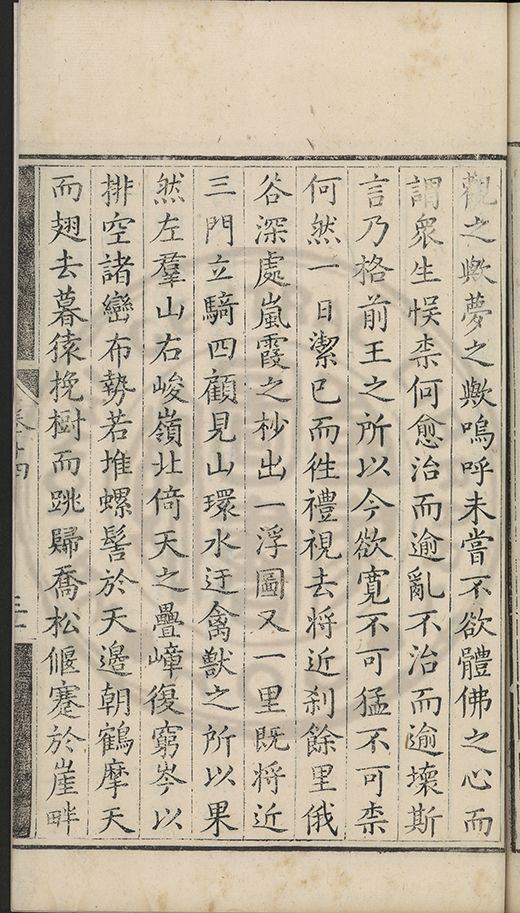 觀之歟夢之歟嗚呼未嘗不欲體佛之心而
謂衆生悮柰何愈治而逾亂不治而逾壞斯
言乃格前王之所以今欲寬不可猛不可柰
何然一日潔已而徃禮視去將近刹餘里俄
谷深處嵐霞之杪出一浮圖又一里既將近
三門立騎四顧見山環水迂禽獸之所以果
然左羣山右峻嶺北倚天之疊嶂復窮岑以
排空諸巒布勢若堆螺髻於天邊朝鶴摩天
而翅去暮猿挽樹而跳歸喬松偃蹇於崖畔
卷十四